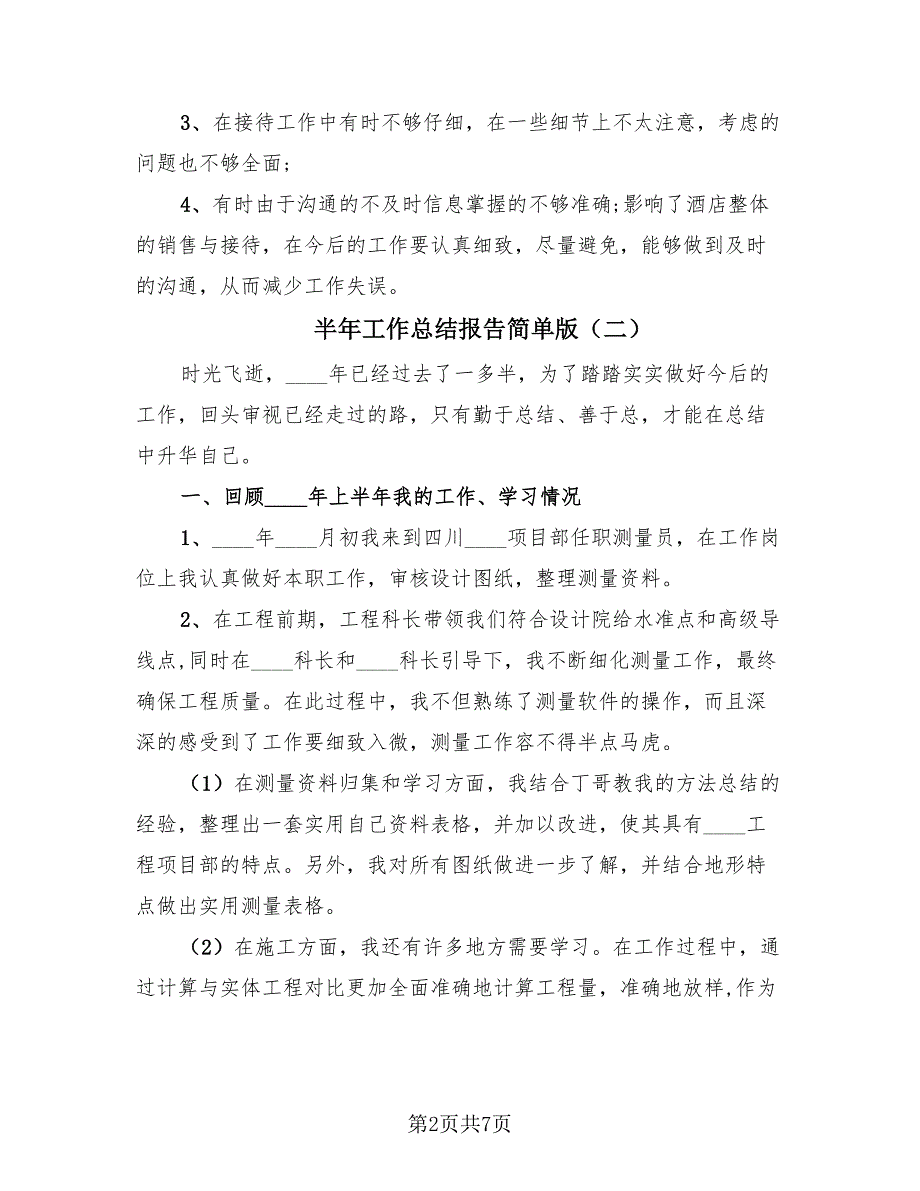 3、在接待工作中有时不够仔细，在一些细节上不太注意，考虑的
问题也不够全面;
4、有时由于沟通的不及时信息掌握的不够准确;影响了酒店整体
的销售与接待，在今后的工作要认真细致，尽量避免，能够做到及时
的沟通，从而减少工作失误。
半年工作总结报告简单版（二）
时光飞逝，____年已经过去了一多半，为了踏踏实实做好今后的
工作，回头审视已经走过的路，只有勤于总结、善于总，才能在总结
中升华自己。
一、回顾____年上半年我的工作、学习情况
1、____年____月初我来到四川____项目部任职测量员，在工作岗
位上我认真做好本职工作，审核设计图纸，整理测量资料。
2、在工程前期，工程科长带领我们符合设计院给水准点和高级导
线点,同时在____科长和____科长引导下，我不断细化测量工作，最终
确保工程质量。在此过程中，我不但熟练了测量软件的操作，而且深
深的感受到了工作要细致入微，测量工作容不得半点马虎。
（1）在测量资料归集和学习方面，我结合丁哥教我的方法总结的
经验，整理出一套实用自己资料表格，并加以改进，使其具有____工
程项目部的特点。另外，我对所有图纸做进一步了解，并结合地形特
点做出实用测量表格。
（2）在施工方面，我还有许多地方需要学习。在工作过程中，通
过计算与实体工程对比更加全面准确地计算工程量，准确地放样,作为
第2页共7页